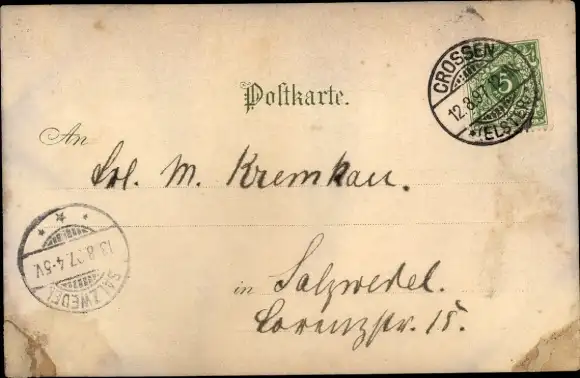 CROSSEN
12.8.97
*(ELSTER)
5
Postkarte.
An
Frl. M. Kremkau.
13.8.97.4-5V.
SALZWEDEL
in Salzwedel.
Lorenzstr. 15.